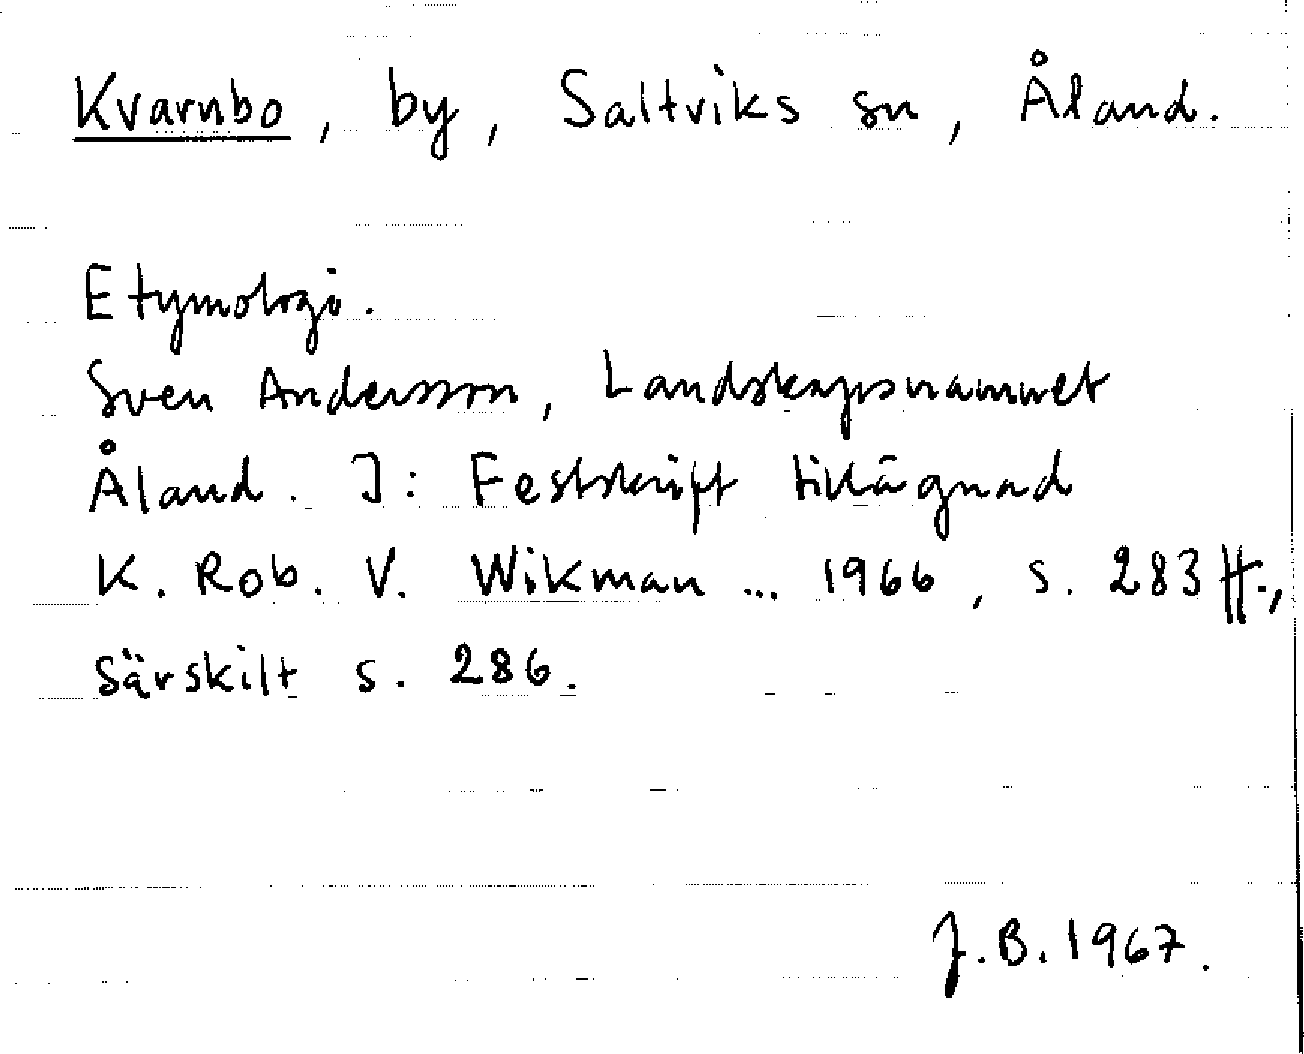 Kvarnbo, by, Saltviks sn, Åland.
Etymologi.
Sven Andersson, Landskapsnamnet
Åland. I: Festskrift tillägnad
K. Rob. V. Wikman ... 1966, s. 283 ff.,
särskilt s. 286.
J.B. 1967.